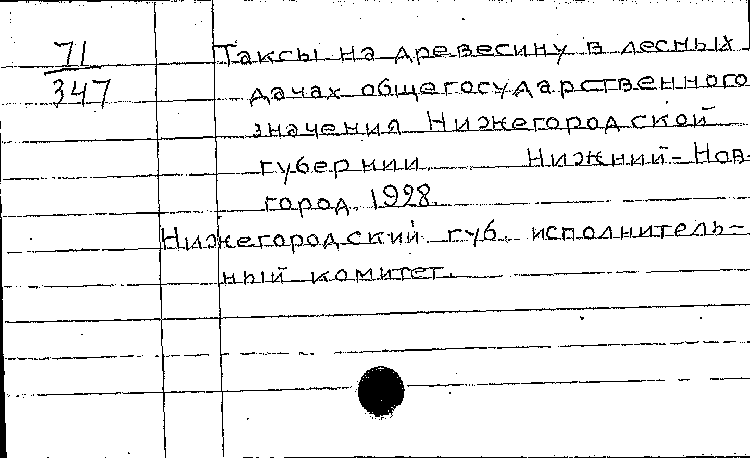 71
347
Таксы на древесину в лесных
дачах общегосударственного
значения Нижегородской
губернии Нижний-Нов-
город. 1928.
Нижегородский губ. исполнитель-
ный комитет.